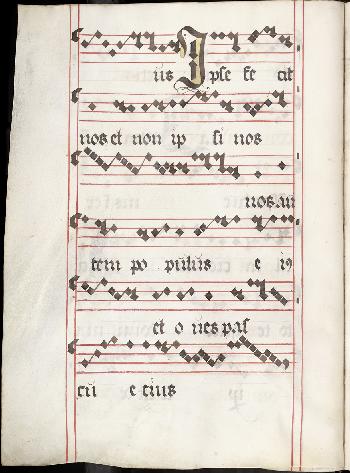 iis Ipse fe cit
nos et non ip si nos
nos au
tem po pulus e i9
et o ues pas
cu e eius